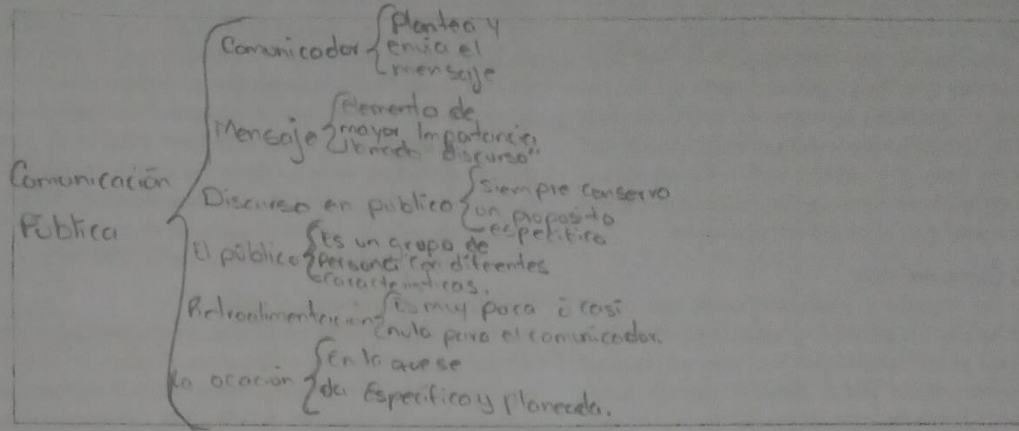 Comunicación
Pública
Comunicador
Plantea y
envia el
mensaje
Mensaje
elemento de
mayor Impotancia
discurso"
Discurso en publico
siempre conserva
un proposito
El público
Es un grupo de
personas con difeentes
Retroalimentacion
muy poca i casi
nula para el comunicador.
La ocación
En la que se
da Especifico y planeada.